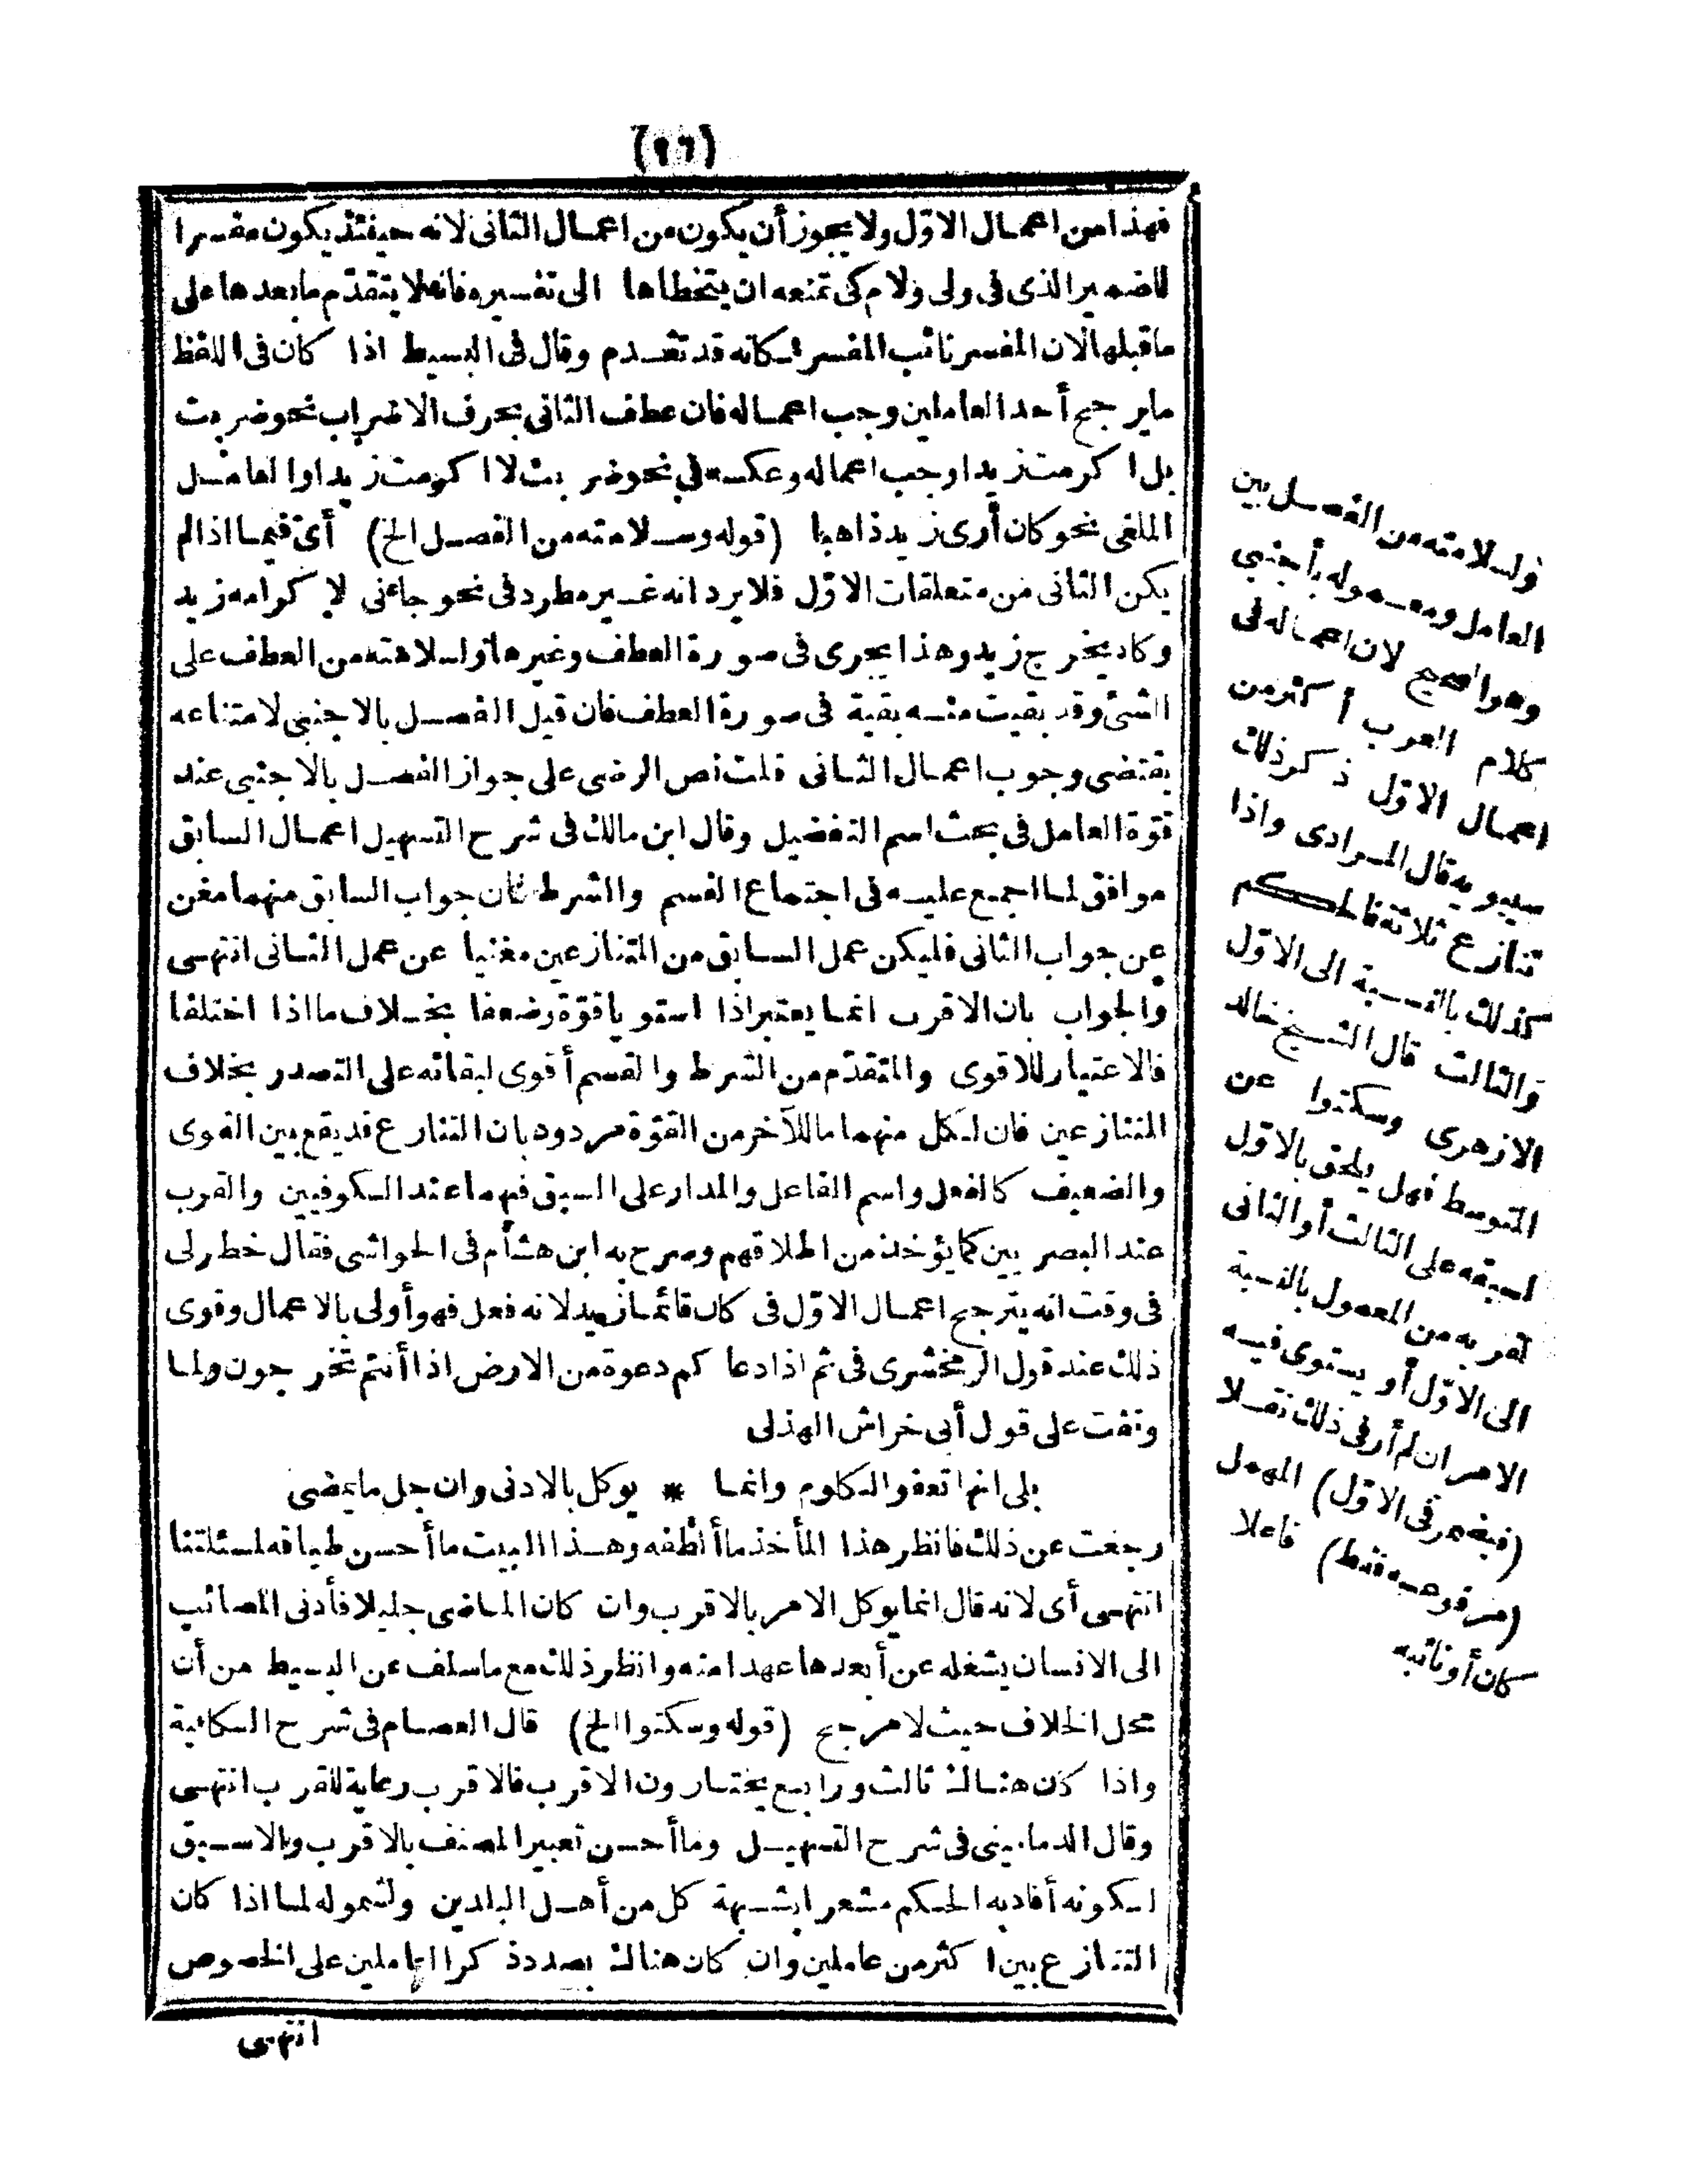 (٩٦)
فهذا من اعمال الاوّل ولا يجوز أن يكون من اعمال الثانى لانه حينئذ يكون مفسرا
للضمير الذى فى ولى ولام كى تمنعه ان يتخطاها الى تفسيره فانه لا يتقدّم ما بعدها على
ما قبلها الان المفسر نائب المفسر فكانه قد تقدم وقال فى البسيط اذا كان فى اللفظ
ما يرجح أحد العاملين وجب اعماله فان عطف الثانى بحرف الاضراب نحو ضربت
بل اكرمت زيدا وجب اعماله وعكسه فى نحو ضربت لا اكرمت زيدا والعامل
الملغى نحو كان أرى زيد ذاهبا (قوله وسلامته من الفصل الخ) أى فيما اذا لم
يكن الثانى من متعلقات الاوّل فلا يرد انه غير مطرد فى نحو جاءنى لاكرامه زيد
وكاد يخرج زيد وهذا يجرى فى صورة العطف وغيرها ولسلامته من العطف على
الشئ وقد بقيت منه بقية فى صورة العطف فان قيل الفصل بالاجنبى لامتناعه
يقتضى وجوب اعمال الثانى قلت نص الرضى على جواز الفصل بالاجنبى عند
قوّة العامل فى بحث اسم التفضيل وقال ابن مالك فى شرح التسهيل اعمال السابق
موافق لما اجمع عليه فى اجتماع القسم والشرط فان جواب السابق منهما مغن
عن جواب الثانى فليكن عمل السابق من المتنازعين مغنيا عن عمل الثانى انتهى
والجواب بان الاقرب انما يعتبر اذا استويا قوّة وضعفا بخلاف ما اذا اختلفا
فالاعتبار للاقوى والمتقدّم من الشرط والقسم أقوى لبقائه على التصدر بخلاف
المتنازعين فان لكل منهما ما للآخر من القوّة مردود بان التنازع قد يقع بين القوى
والضعيف كالفعل واسم الفاعل والمدار على السبق فيهما عند الكوفيين والقرب
عند البصريين كما يؤخذ من اطلاقهم وصرح به ابن هشام فى الحواشى فقال خطر لى
فى وقت انه يترجح اعمال الاوّل فى كان قائما زيد لانه فعل فهو أولى بالاعمال وقوى
ذلك عند قول الزمخشرى فى ثم اذا دعاكم دعوة من الارض اذا أنتم تخرجون ولما
وقفت على قول أبى خراش الهذلى
بلى انها تعفو الكلوم وانما * يوكل بالادنى وان جل ما يمضى
رجعت عن ذلك فانظر هذا المأخذ ما ألطفه وهذا البيت ما أحسن طباقه لمسئلتنا
انتهى أى لانه قال انما يوكل الامر بالاقرب وان كان الماضى جليلا فأدنى المصائب
الى الانسان يشغله عن أبعدها عهدا منه وانظر ذلك مع ما سلف عن البسيط من أن
محل الخلاف حيث لا مرجح (قوله وسكتوا الخ) قال العصام فى شرح الكافية
واذا كان هناك ثالث ورابع يختارون الاقرب فالاقرب رعاية للقرب انتهى
وقال الدمامينى فى شرح التسهيل وما أحسن تعبير المصنف بالاقرب وبالاسبق
لكونه أفاد به الحكم مشعرا بشبهة كل من أهل البلدين ولشموله لما اذا كان
التنازع بين اكثر من عاملين وان كان هناك بصدد ذكر العاملين على الخصوص
انتهى
ولسلامته من الفصل بين
العامل ومعموله بأجنبى
وهو الصحيح لان اعماله فى
كلام العرب أكثر من
اعمال الاوّل ذكر ذلك
سيبويه قال المرادى واذا
تنازع ثلاثة فالحكم
كذلك بالنسبة الى الاوّل
والثالث قال الشيخ خالد
الازهرى وسكتوا عن
المتوسط فهل يلحق بالاوّل
لسبقه على الثالث أو الثانى
لقربه من المعمول بالنسبة
الى الاوّل أو يستوى فيه
الامران لم أر فى ذلك نقلا
(فيضمر فى الاوّل) المهمل
(مرفوعه فقط) فاعلا
كان أو نائبه